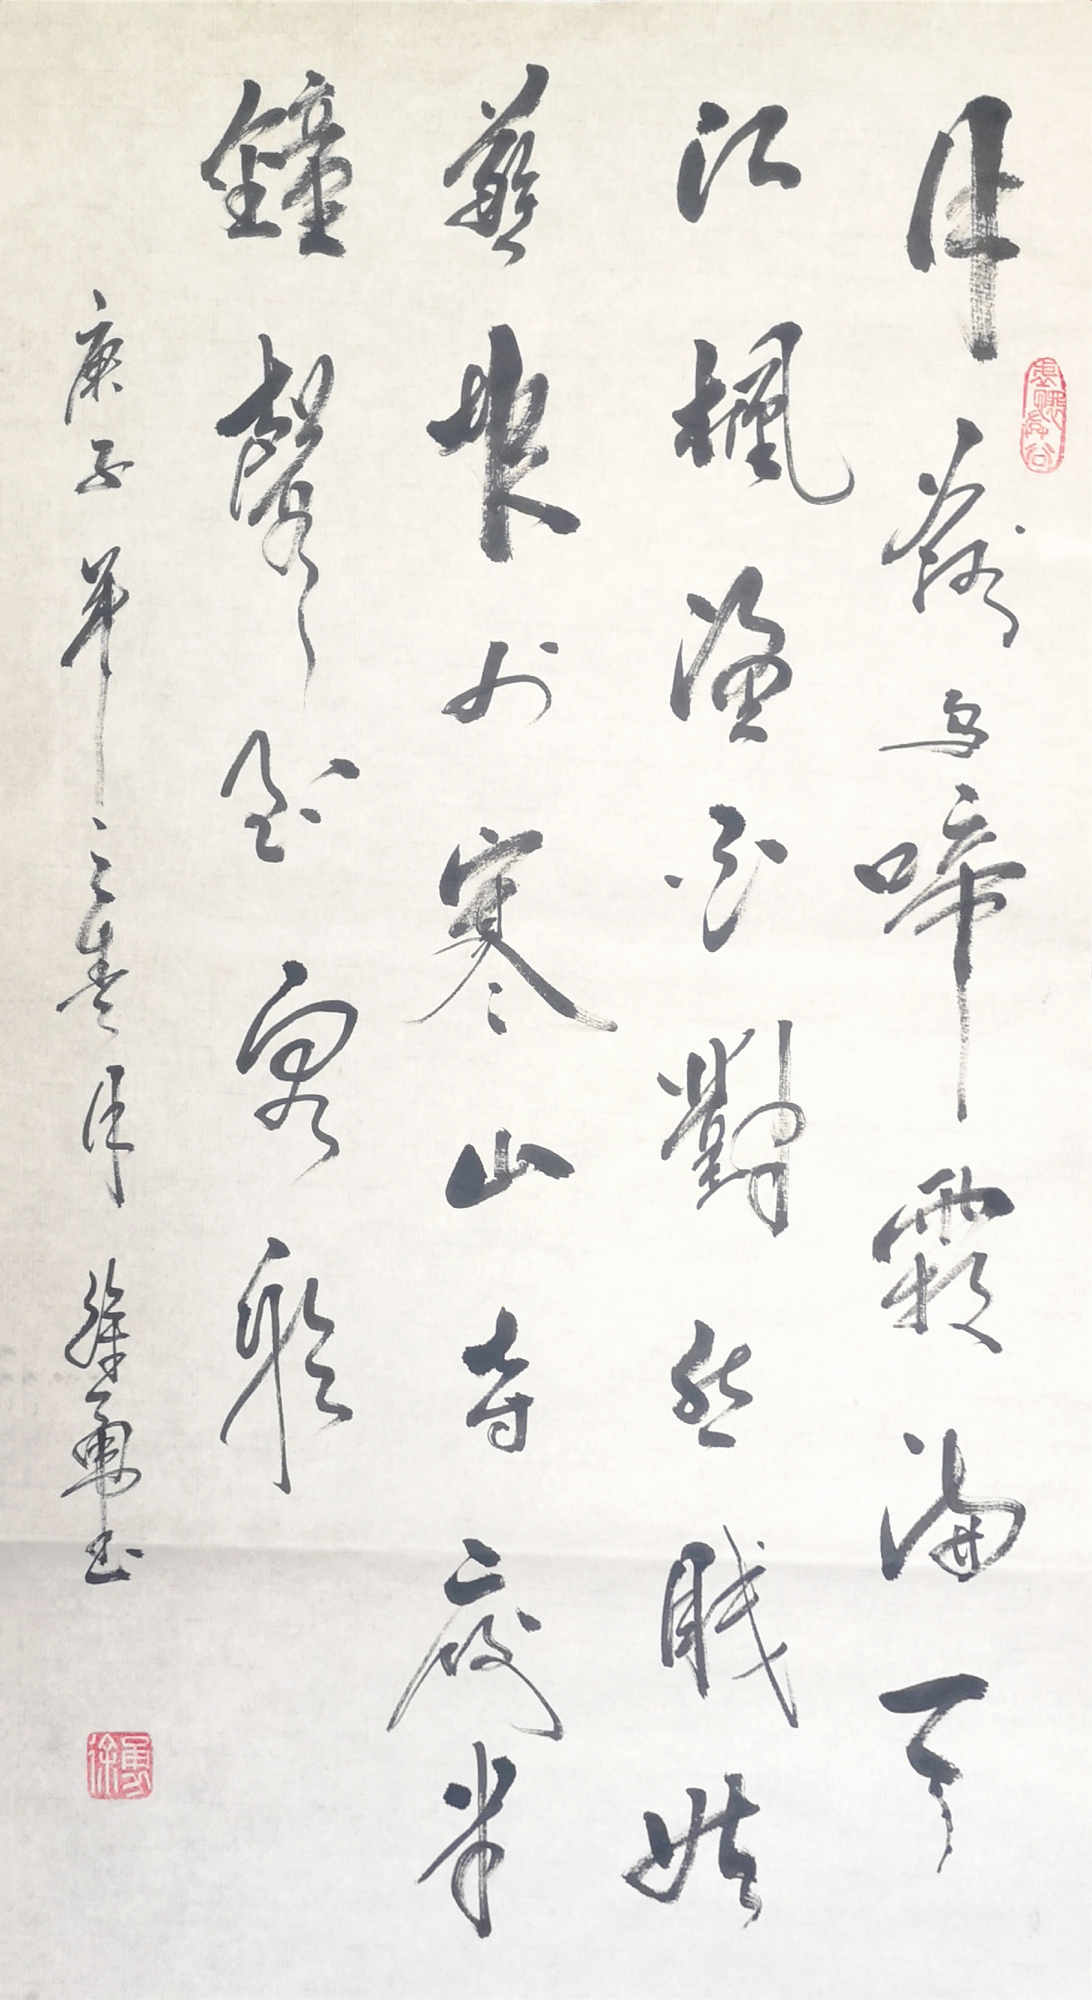 月落烏啼霜滿天
江楓漁火對愁眠姑
蘇城外寒山寺夜半
鐘聲到客船
庚子年之春月 徐勇书
徐勇